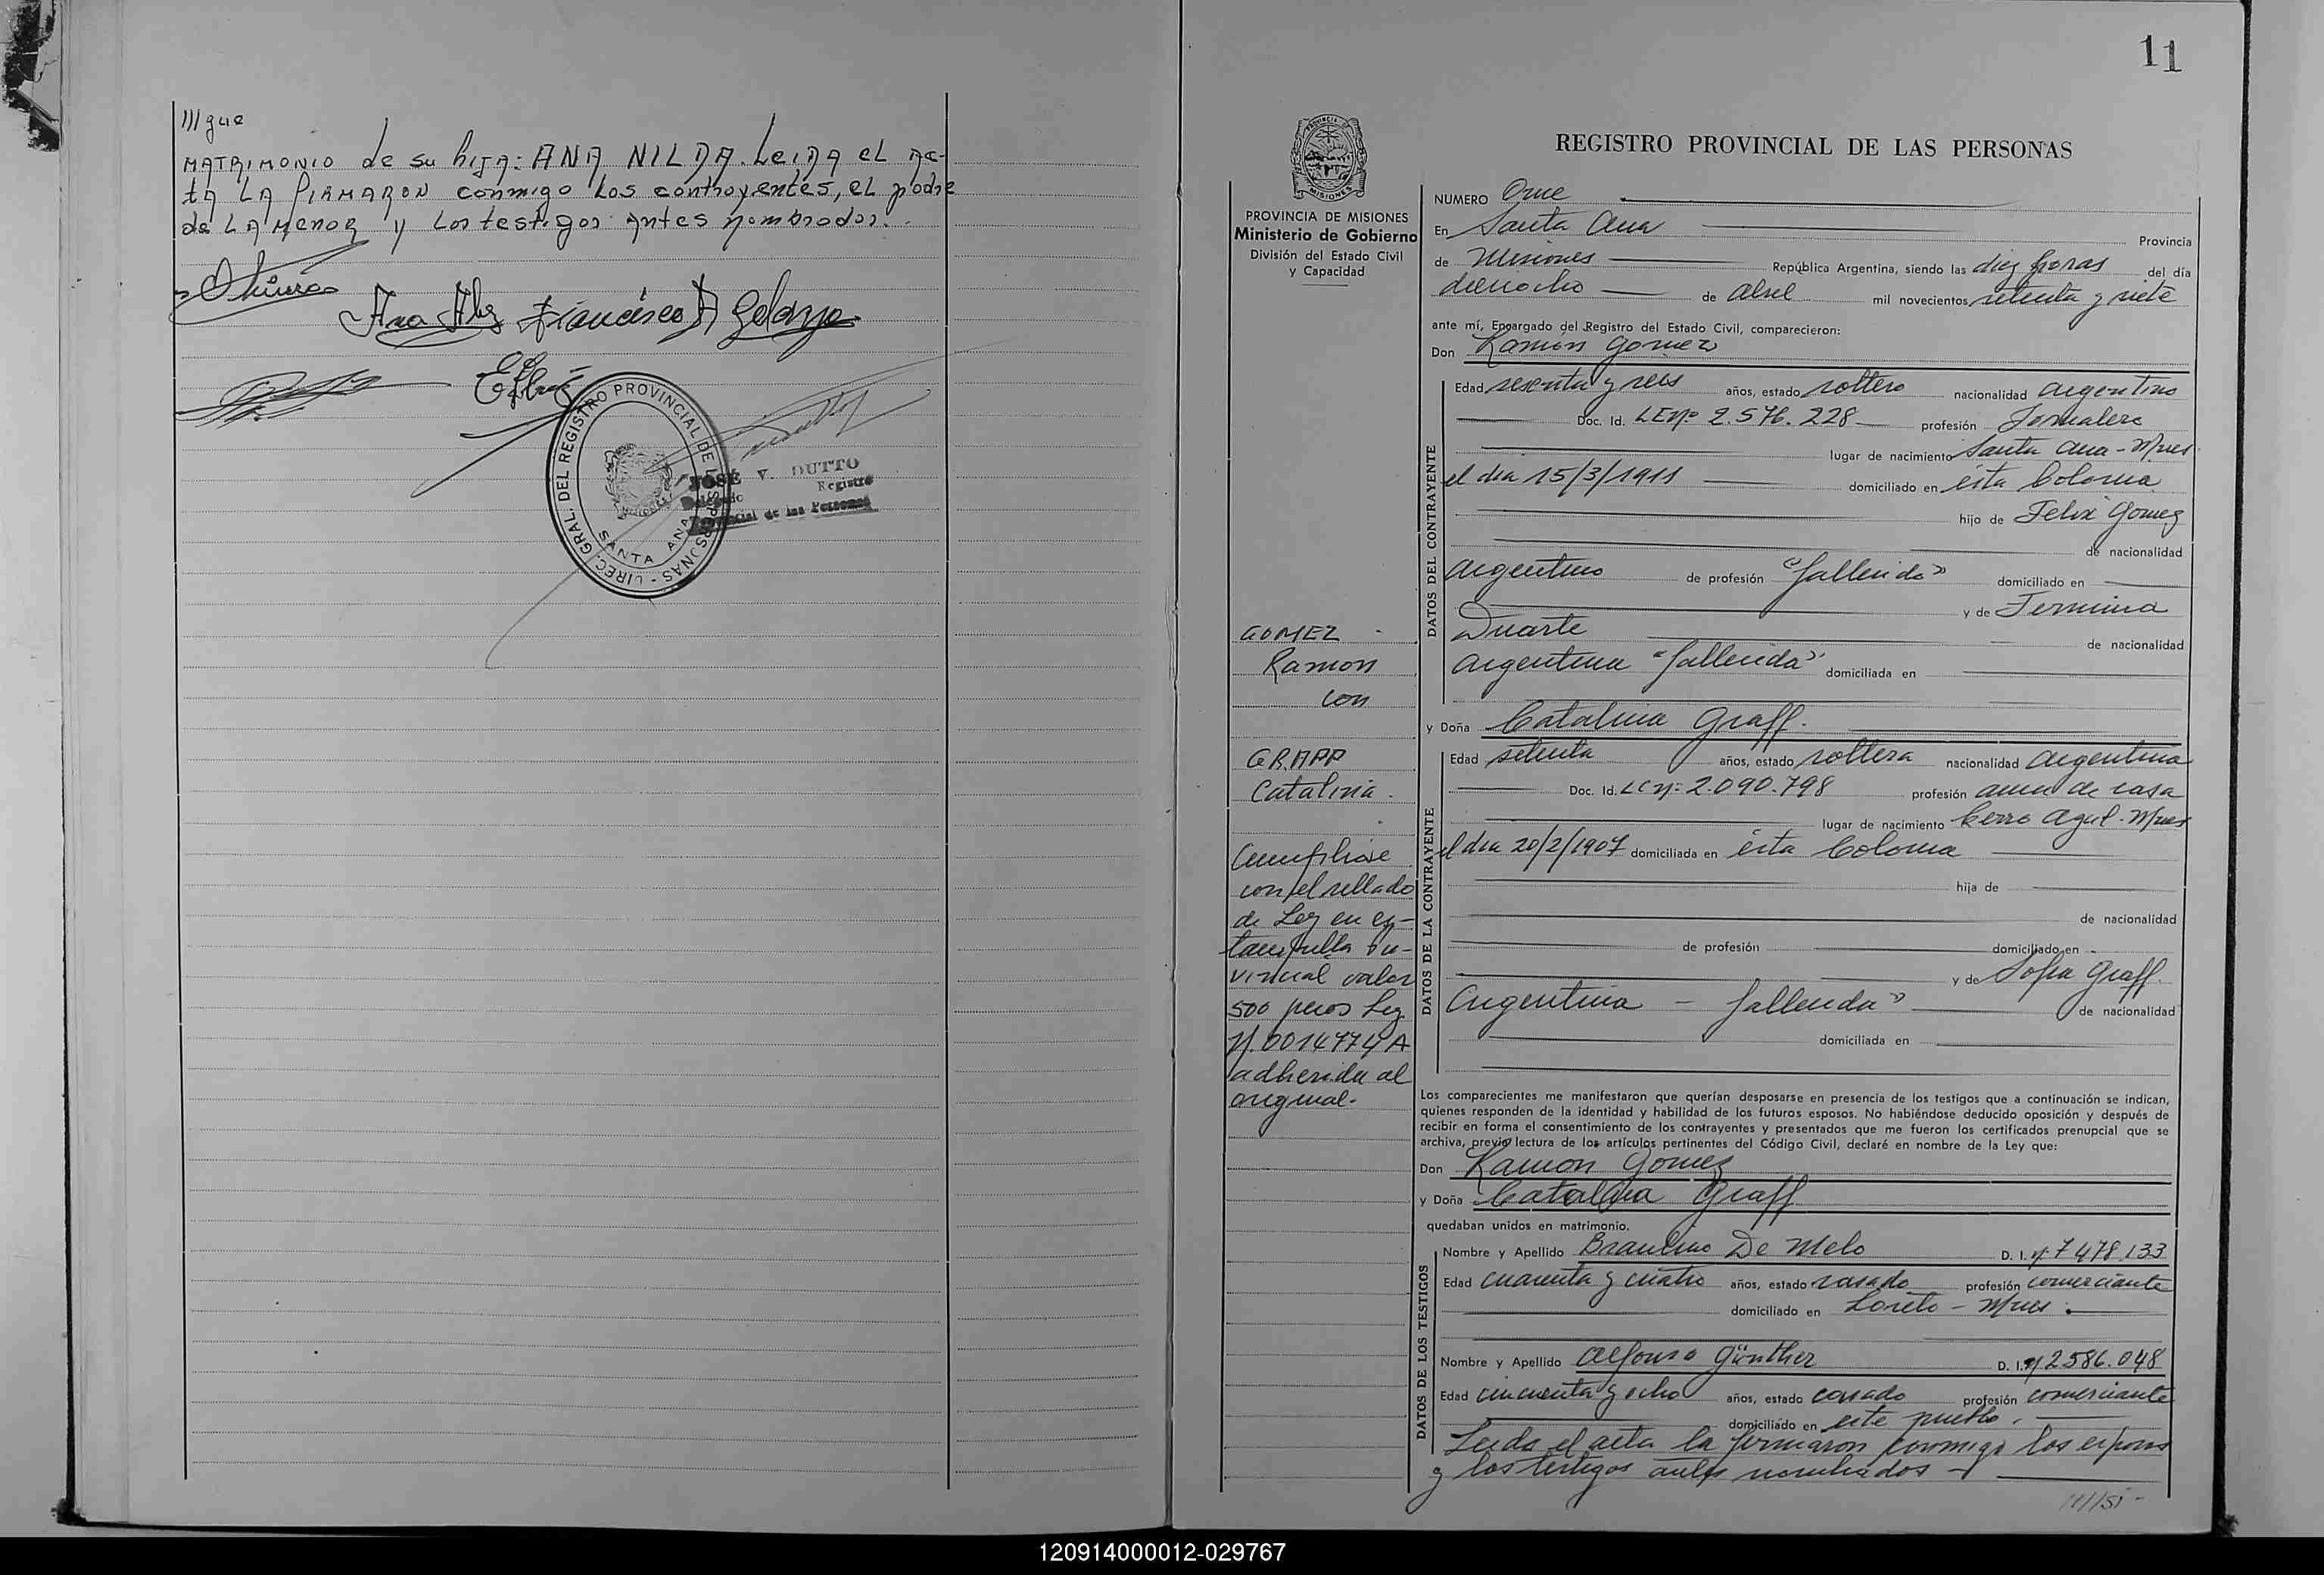 ///gue
MATRIMONIO de su hija: ANA NILDA. Leida el ac-
ta LA FIRMARON conmigo Los contrayentes, el padre
de LA Menor y Los testigos antes nombrados.-
Francisco A
DIREC. GRAL. DEL REGISTRO PROVINCIAL DE LAS PERSONAS -
MISIONES
SANTA ANA
JOSÉ V. DUTTO
Delegado Registro
Provincial de las Personas
11
PROVINCIA DE
MISIONES
PROVINCIA DE MISIONES
Ministerio de Gobierno
División del Estado Civil
y Capacidad
GOMEZ
Ramon
con
GRAFF
Catalina.
Cumpliose
con el sellado
de Ley en es-
tampilla pro-
vincial valor
500 pesos Ley
N. 0014774 A
adherida al
original.
REGISTRO PROVINCIAL DE LAS PERSONAS
NUMERO Once
En Santa Ana Provincia
de Misiones República Argentina, siendo las diez horas del día
dieciocho de Abril mil novecientos setenta y siete
ante mí, Encargado del Registro del Estado Civil, comparecieron:
Don Ramón Gomez
DATOS DEL CONTRAYENTE
Edad sesenta y seis años, estado soltero nacionalidad argentino
Doc. Id. LE Nº 2.576.228 profesión Jornalero
lugar de nacimiento Santa Ana - Mnes
el dia 15/3/1911 domiciliado en ésta Colonia
hijo de Felix Gomez
de nacionalidad
Argentino de profesión "fallecido" domiciliado en
y de Fermina
Duarte de nacionalidad
Argentina "fallecida" domiciliada en
y Doña Catalina Graff.
DATOS DE LA CONTRAYENTE
Edad setenta años, estado soltera nacionalidad argentina
Doc. Id. LC Nº 2.090.798 profesión ama de casa
lugar de nacimiento Cerro Azul - Mnes
el dia 20/2/1907 domiciliada en ésta Colonia
hija de
de nacionalidad
de profesión domiciliado en
y de Sofia Graff.
Argentina - fallecida" de nacionalidad
domiciliada en
Los comparecientes me manifestaron que querían desposarse en presencia de los testigos que a continuación se indican,
quienes responden de la identidad y habilidad de los futuros esposos. No habiéndose deducido oposición y después de
recibir en forma el consentimiento de los contrayentes y presentados que me fueron los certificados prenupcial que se
archiva, previo lectura de los artículos pertinentes del Código Civil, declaré en nombre de la Ley que:
Don Ramon Gomez
y Doña Catalina Graff
quedaban unidos en matrimonio.
DATOS DE LOS TESTIGOS
Nombre y Apellido Braulino De Melo D. I. Nº 7478.133
Edad cuarenta y cuatro años, estado casado profesión comerciante
domiciliado en Loreto - Mnes.
Nombre y Apellido Alfonso Günther D. I. Nº 2586.048
Edad cincuenta y ocho años, estado casado profesión comerciante
domiciliado en este pueblo.
Leida el acta la firmaron conmigo los esposos
y los testigos antes nombrados -
120914000012-029767